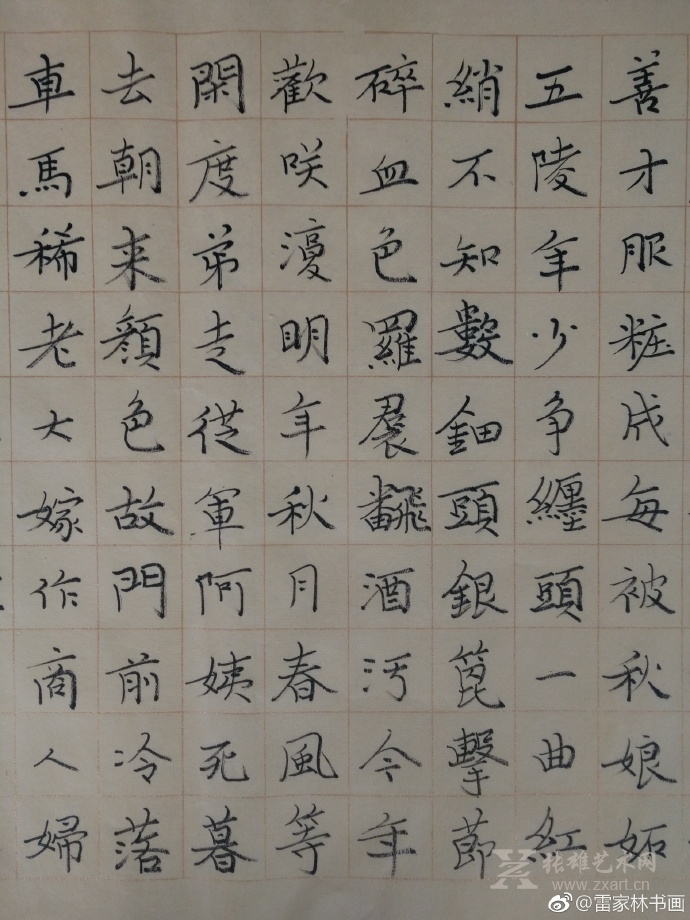 善才服粧成每被秋娘妬
五陵年少争纏頭一曲紅
綃不知數鈿頭銀篦擊莭
碎血色羅裠飜酒污今年
歡咲復明年秋月春風等
閑度弟走從軍阿姨死暮
去朝来顔色故門前冷落
車馬稀老大嫁作商人婦
张雄艺术网
www.zxart.cn
@雷家林书画